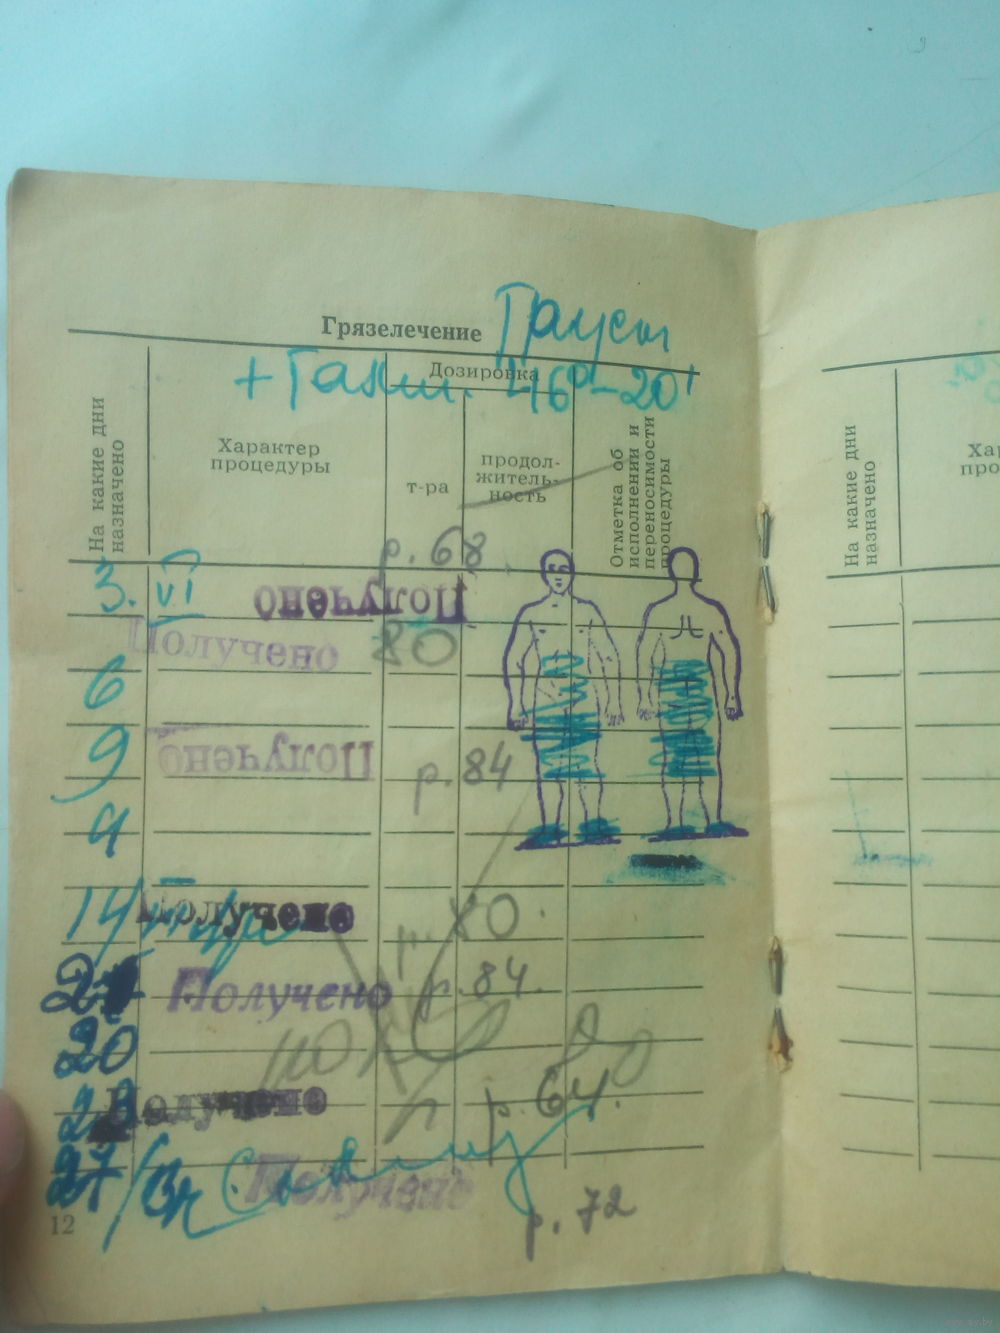 Грязелечение
Дозировка
+ 46° – 20'
На какие дни назначено
Характер процедуры
т-ра
продол-
житель-
ность
Отметка об исполнении и переносимости процедуры
р. 68
3. VI Получено
Получено 80
6
9 Получено
р. 84
9
14 Получено 80.
Получено р. 84.
20
80
Получено р. 64.
27 Получено
р. 72
12
На какие дни назначено